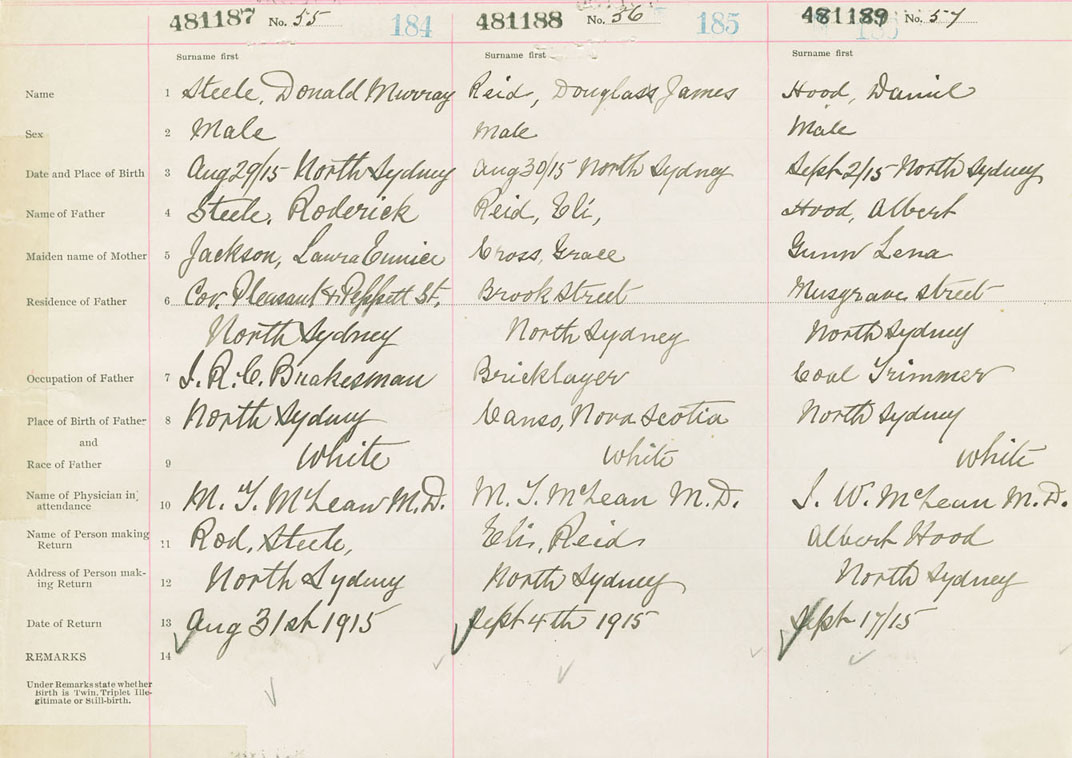 481187 No. 55 184 481188 No. 56 185 481189 No. 57 185
Surname first Surname first Surname first
Name 1 Steele, Donald Murray Reid, Douglass James Hood, Daniel
Sex 2 Male Male Male
Date and Place of Birth 3 Aug 29/15 North Sydney Aug 30/15 North Sydney Sept 2/15 North Sydney
Name of Father 4 Steele, Roderick Reid, Eli, Hood, Albert
Maiden name of Mother 5 Jackson, Laura Eunice Cross, Grace Gunn Lena
Residence of Father 6 Cor. Pleasant & Peppett St, Brook Street Musgrave street
North Sydney North Sydney North Sydney
Occupation of Father 7 I. R. C. Brakesman Bricklayer Coal Trimmer
Place of Birth of Father 8 North Sydney Canso, Nova Scotia North Sydney
and
Race of Father 9 White White White
Name of Physician in attendance 10 M. T. McLean M.D. M. T. McLean M.D. J. W. McLean M.D.
Name of Person making Return 11 Rod, Steele, Eli, Reid Albert Hood
Address of Person mak-
ing Return 12 North Sydney North Sydney North Sydney
Date of Return 13 Aug 31st 1915 Sept 4th 1915 Sept 17/15
REMARKS 14
Under Remarks state whether
Birth is Twin, Triplet Ille-
gitimate or Still-birth.